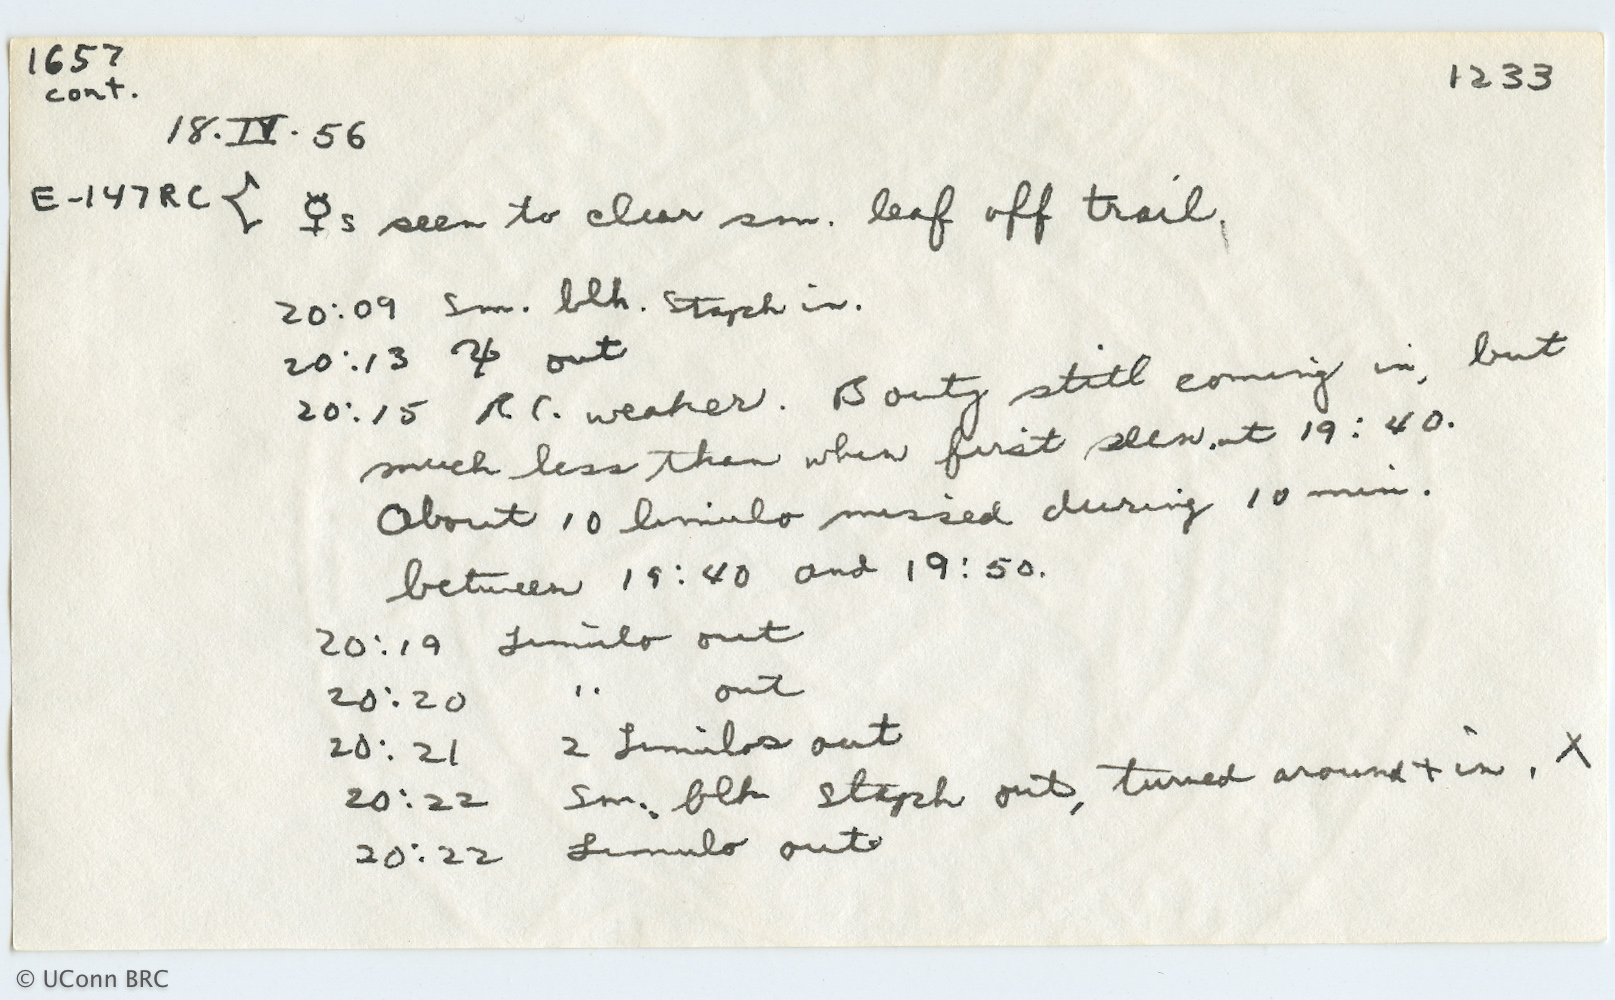 1657
cont.
1233
18.IV.56
E-147RC { ☿s seen to clear sm. leaf off trail.
20:09 Sm. blk. Staph in.
20:13 out
20:15 R.C. weaker. Booty still coming in, but
much less than when first seen at 19:40.
About 10 limulo missed during 10 min.
between 19:40 and 19:50.
20:19 Limulo out
20:20 " out
20:21 2 Limulos out
20:22 Sm. blk Staph out, turned around + in. X
20:22 Limulo out
© UConn BRC